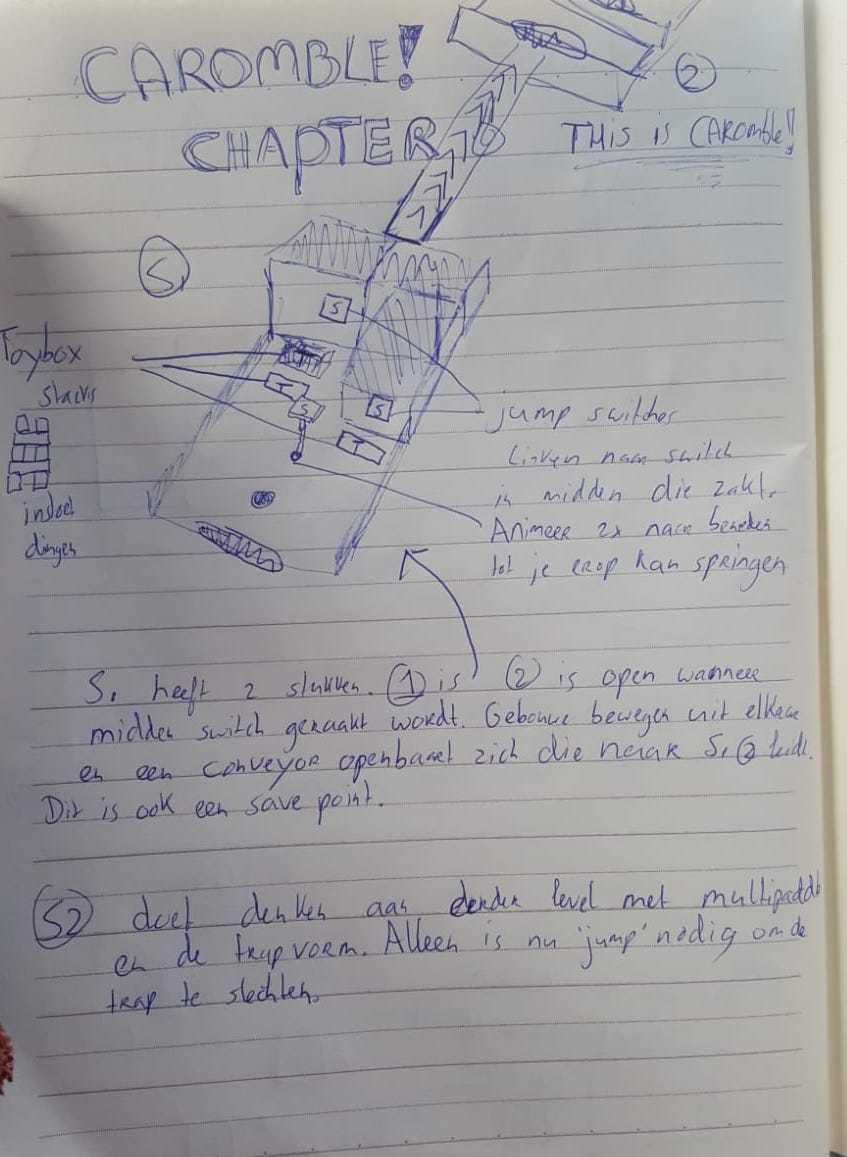 CAROMBLE!
CHAPTER 6
2
THIS is CAROMBLE!
S1
S
Toybox
stacks
T
S
S
T
jump switches
linken naar switch
in midden die zakt.
Animeer 2x naar beneden
tot je erop kan springen
indeel
dingen
S1 heeft 2 stukken. 1 is 2 is open wanneer
midden switch geraakt wordt. Gebouwe bewegen uit elkaar
en een conveyor openbaart zich die naar S1 2 leidt.
Dit is ook een save point.
S2 doet denken aan derden level met multipaddle
en de trapvorm. Alleen is nu 'jump' nodig om de
trap te slechten.